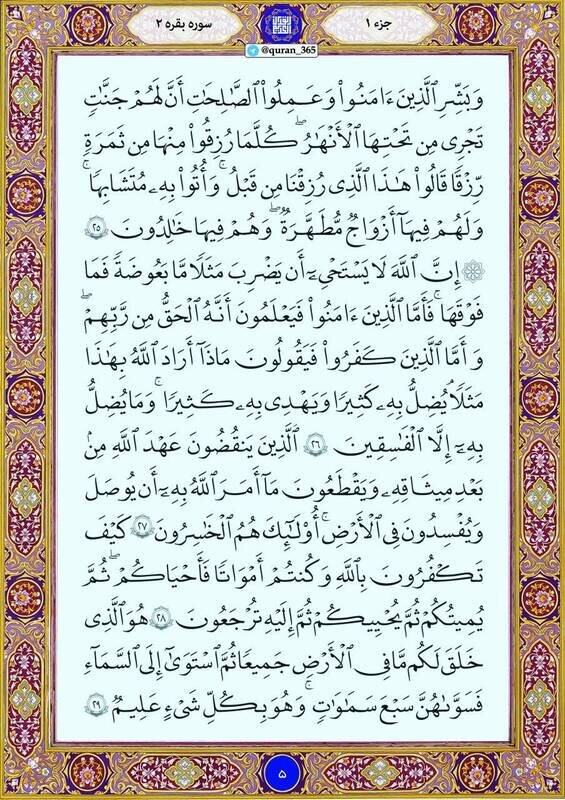 جزء ۱
سوره بقره ۲
@quran_365
وَبَشِّرِ ٱلَّذِينَ ءَامَنُوا۟ وَعَمِلُوا۟ ٱلصَّـٰلِحَـٰتِ أَنَّ لَهُمْ جَنَّـٰتٍ
تَجْرِى مِن تَحْتِهَا ٱلْأَنْهَـٰرُ ۖ كُلَّمَا رُزِقُوا۟ مِنْهَا مِن ثَمَرَةٍ
رِّزْقًا قَالُوا۟ هَـٰذَا ٱلَّذِى رُزِقْنَا مِن قَبْلُ ۖ وَأُتُوا۟ بِهِۦ مُتَشَـٰبِهًا ۖ
وَلَهُمْ فِيهَآ أَزْوَٰجٌ مُّطَهَّرَةٌ ۖ وَهُمْ فِيهَا خَـٰلِدُونَ ۲۵
۞ إِنَّ ٱللَّهَ لَا يَسْتَحْىِۦٓ أَن يَضْرِبَ مَثَلًا مَّا بَعُوضَةً فَمَا
فَوْقَهَا ۚ فَأَمَّا ٱلَّذِينَ ءَامَنُوا۟ فَيَعْلَمُونَ أَنَّهُ ٱلْحَقُّ مِن رَّبِّهِمْ ۖ
وَأَمَّا ٱلَّذِينَ كَفَرُوا۟ فَيَقُولُونَ مَاذَآ أَرَادَ ٱللَّهُ بِهَـٰذَا
مَثَلًا ۘ يُضِلُّ بِهِۦ كَثِيرًا وَيَهْدِى بِهِۦ كَثِيرًا ۚ وَمَا يُضِلُّ
بِهِۦٓ إِلَّا ٱلْفَـٰسِقِينَ ۲۶ ٱلَّذِينَ يَنقُضُونَ عَهْدَ ٱللَّهِ مِنۢ
بَعْدِ مِيثَـٰقِهِۦ وَيَقْطَعُونَ مَآ أَمَرَ ٱللَّهُ بِهِۦٓ أَن يُوصَلَ
وَيُفْسِدُونَ فِى ٱلْأَرْضِ ۚ أُو۟لَـٰٓئِكَ هُمُ ٱلْخَـٰسِرُونَ ۲۷ كَيْفَ
تَكْفُرُونَ بِٱللَّهِ وَكُنتُمْ أَمْوَٰتًا فَأَحْيَـٰكُمْ ۖ ثُمَّ
يُمِيتُكُمْ ثُمَّ يُحْيِيكُمْ ثُمَّ إِلَيْهِ تُرْجَعُونَ ۲۸ هُوَ ٱلَّذِى
خَلَقَ لَكُم مَّا فِى ٱلْأَرْضِ جَمِيعًا ثُمَّ ٱسْتَوَىٰٓ إِلَى ٱلسَّمَآءِ
فَسَوَّىٰهُنَّ سَبْعَ سَمَـٰوَٰتٍ ۚ وَهُوَ بِكُلِّ شَىْءٍ عَلِيمٌ ۲۹
۵